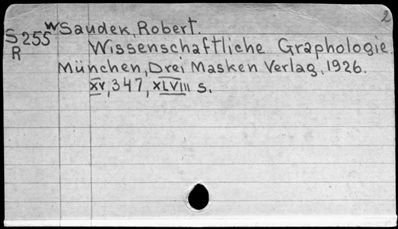 2
S 255 w Saudek, Robert.
R Wissenschaftliche Graphologie.
München, Drei Masken Verlag, 1926.
XV, 347, XLVIII S.